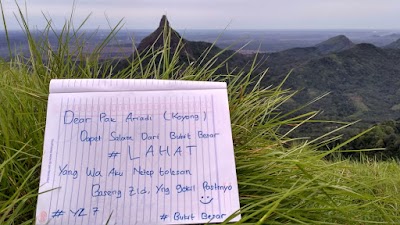 Dear Pak Ariadi (Koyong)
Dapet Salam Dari Bukit Besar
# LAHAT
Yang Wa Aku Netep tulesan
Baseng Zid, Yng gokil Pastinyo
# YZ 7
# Bukit Besar